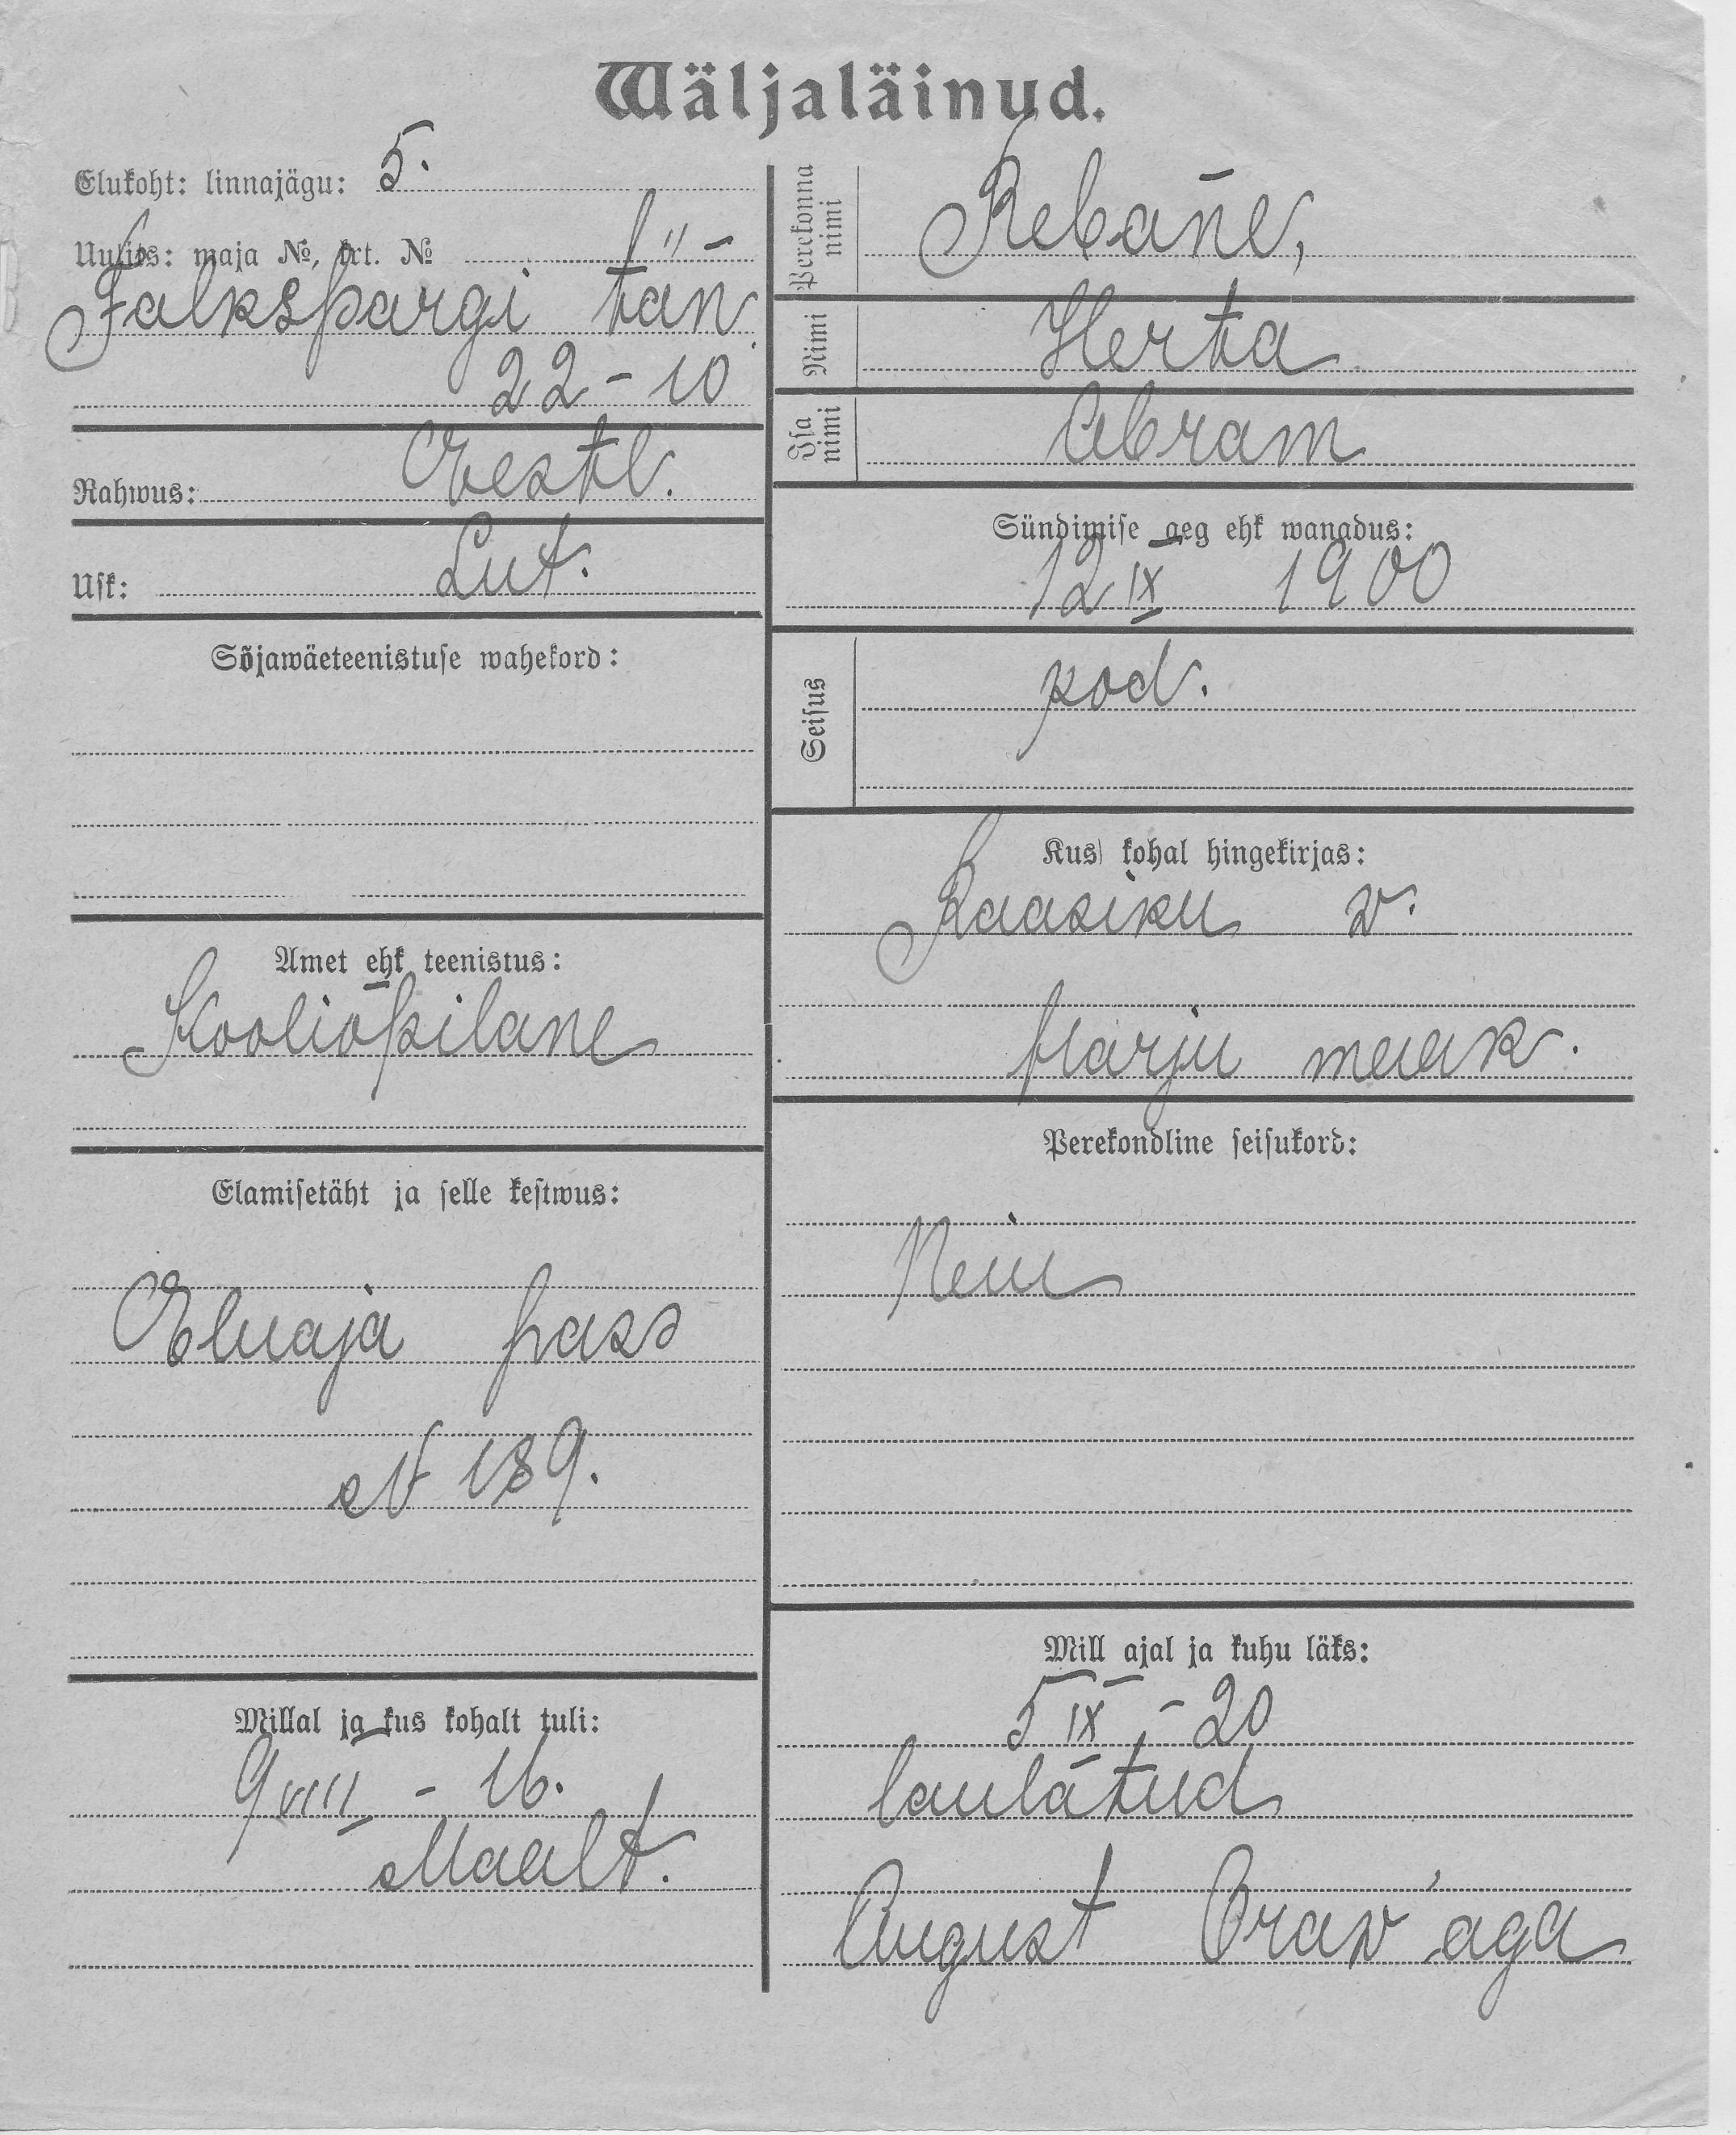 Wäljaläinud.
Elukoht: linnajägu: 5.
Uulits: maja №, krt. №
Falkspargi tän
22 - 10
Rahwus: Eestl.
Usk: Lut.
Sõjawäeteenistuse wahekord:
Amet ehk teenistus:
Kooliõpilane
Elamisetäht ja selle kestwus:
Eluaja pass
№ 189.
Millal ja kus kohalt tuli:
9 VIII - 16.
Maalt.
Perekonna nimi Rebane,
Nimi Herta
Isa nimi Abram
Sündimise aeg ehk wanadus:
12 IX 1900
Seisus kod.
Kus kohal hingekirjas:
Raasiku v.
Harju maak.
Perekondline seisukord:
Neiu
Mill ajal ja kuhu läks:
5 IX - 20
laulatud
August Orav'aga